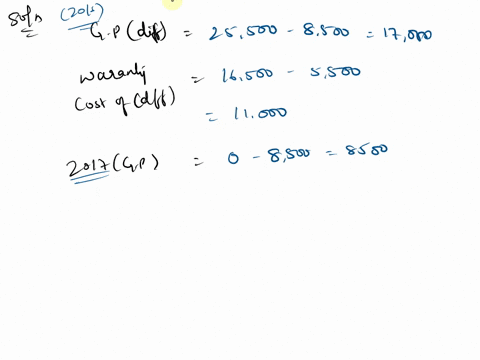 Soln (2016)
G.P (dif) = 25,500 - 8.500 = 17,000
Waranty = 16,500 - 5,500
Cost of (diff)
= 11.000
2017 (G.P) = 0 - 8,500 = 8500